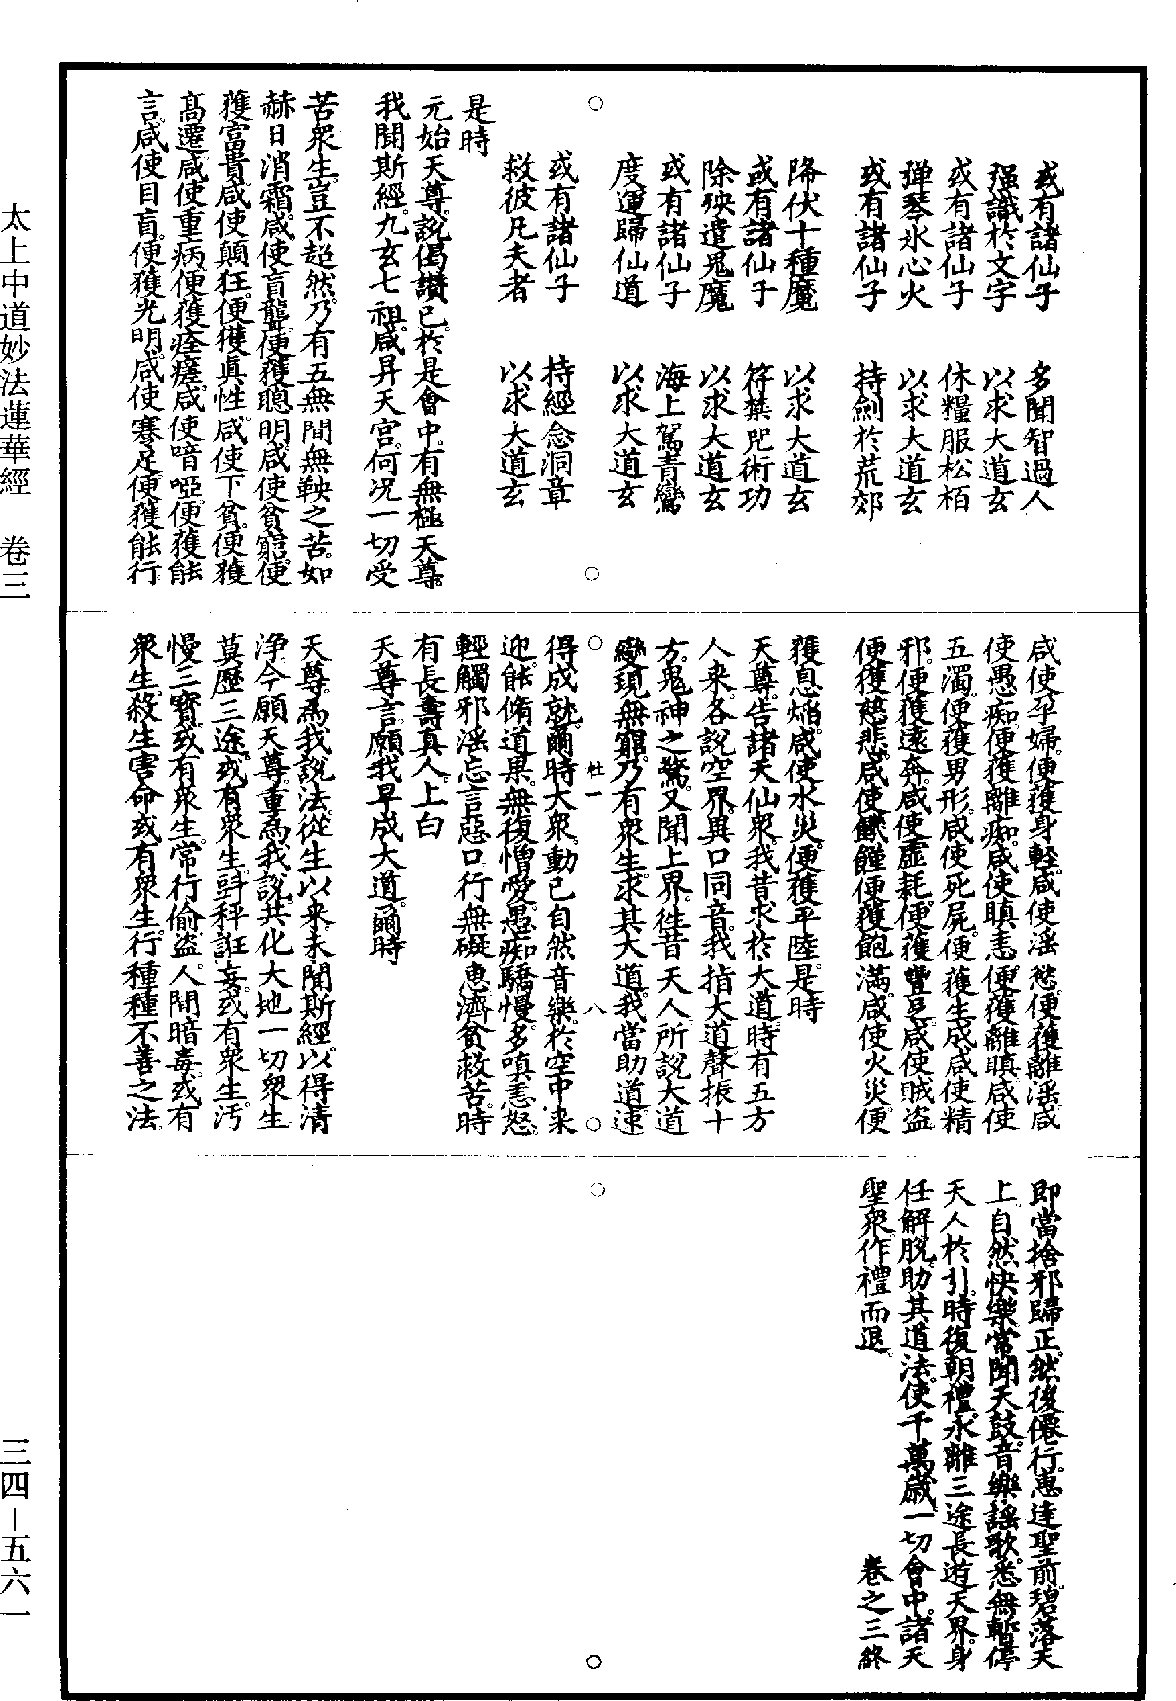 或有諸仙子　多聞智過人
强識於文字　以求大道玄
或有諸仙子　休糧服松栢
彈琴氷心火　以求大道玄
或有諸仙子　持劍於荒郊
降伏十種魔　以求大道玄
或有諸仙子　符藥咒術功
除殃遣鬼魔　以求大道玄
或有諸仙子　海上駕青鸞
度運歸仙道　以求大道玄
或有諸仙子　持經念洞章
救彼凡夫者　以求大道玄
是時
元始天尊。說偈讚已。於是會中。有無極天尊。
我聞斯經。九玄七祖。咸昇天宮。何况一切受
苦眾生。豈不超然。乃有五無間無鞅之苦。如
赫日消霜。咸使盲聾。便獲聰明。咸使貧窮。便
獲富貴。咸使顛狂。便獲真性。咸使下貧。便獲
高遷。咸使重病。便獲痊瘥。咸使喑啞。便獲能
言。咸使目盲。便獲光明。咸使蹇足。便獲能行
咸使孕婦。便獲身輕。咸使淫慾。便獲離淫。咸
使愚癡。便獲離癡。咸使瞋恚。便獲離瞋。咸使
五濁。便獲男形。咸使死屍。便獲生成。咸使精
邪。便獲遠奔。咸使虛耗。便獲豐足。咸使賊盜
便獲慈悲。咸使飢饉。便獲飽滿。咸使火災。便
獲息焰。咸使水災。便獲平陸。是時
天尊。告諸天仙眾。我昔求於大道。時有五方
人來。各說空界。異口同音。我指大道。聲振十
方。鬼神之驚。又聞上界。徃昔天人。所說大道
變現無窮。乃有眾生。求其大道。我當助道。速
杜一　八
得成就。爾時大眾。動已自然音樂。於空中來
迎。能脩道果。無復憎愛。愚痴驕慢。多嗔恚怒。
輕觸邪淫。忘言惡口。行無礙惠。濟貧救苦。時
有長壽真人。上白
天尊言。願我早成大道。爾時
天尊。為我說法。從生以來。未聞斯經。以得清
淨。今願天尊。重為我說。共化大地一切眾生
莫歷三途。或有眾生。㪷秤誑妄。或有眾生。汚
慢三寶。或有眾生。常行偷盜。人間暗毒。或有
眾生。殺生害命。或有眾生。行種種不善之法。
即當捨邪歸正。然後僊行。惠達聖前。碧落天
上。自然快樂。常聞天鼓。音樂謠歌。悉無暫停
天人於引。時復朝禮。永離三途。長遊天界。身
任解脫。助其道法。使千萬歲。一切會中。諸天
聖眾。作禮而退。　卷之三終
太上中道妙法蓮華經　卷三
三四—五六一